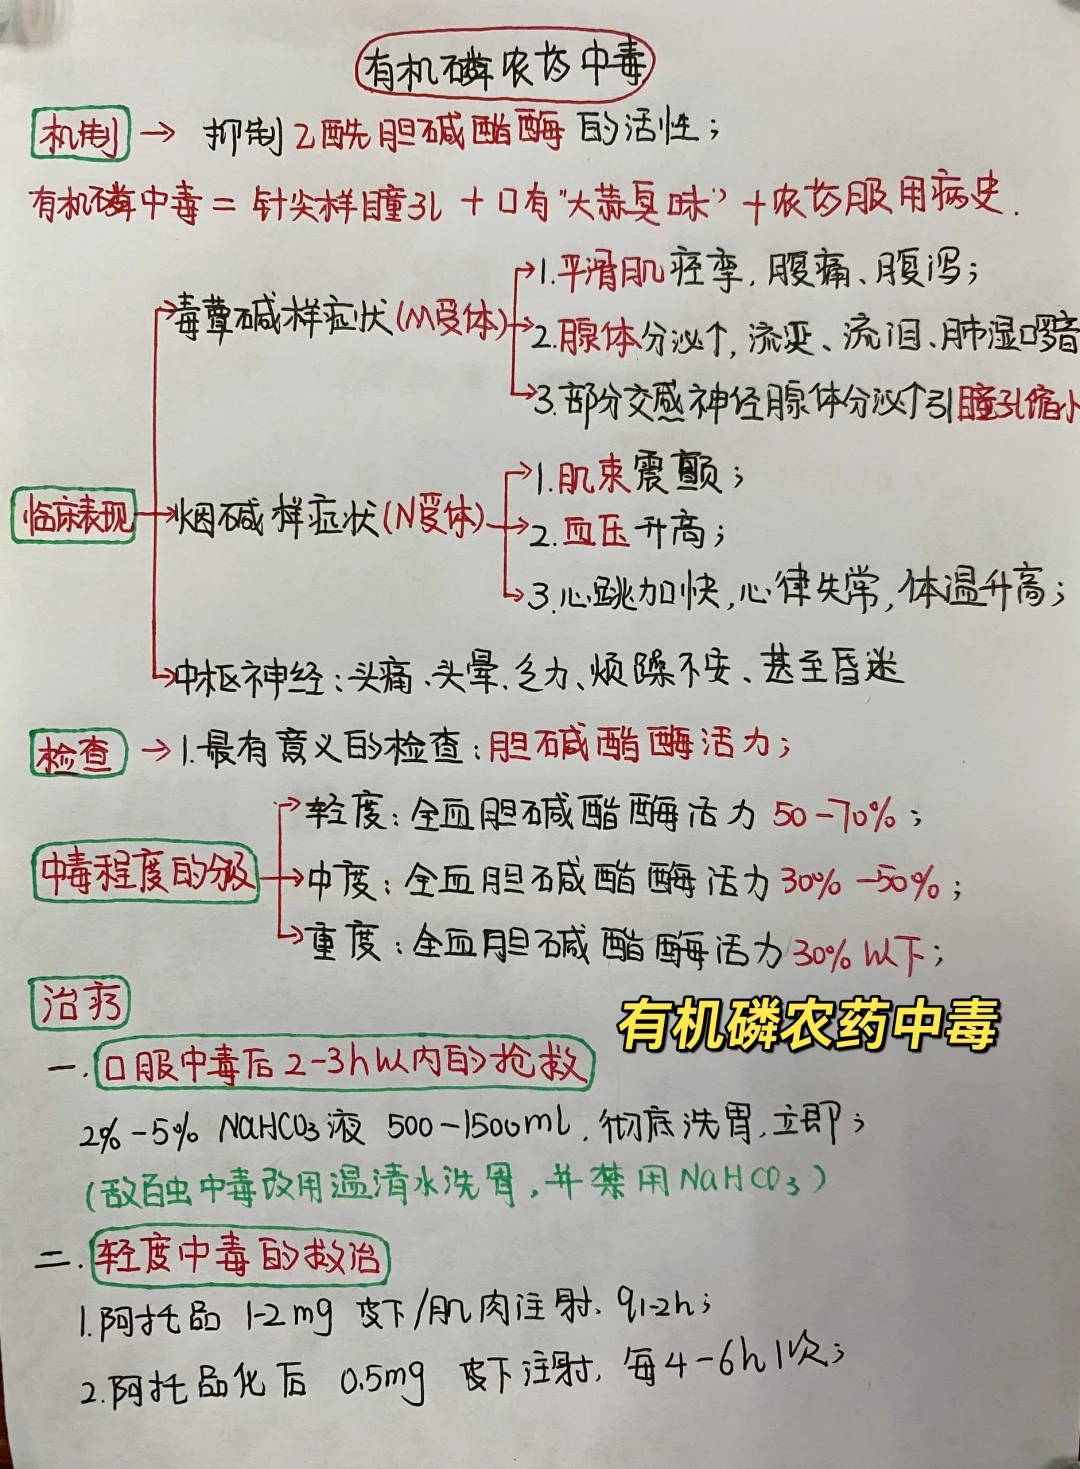 有机磷农药中毒
机制 → 抑制乙酰胆碱酯酶的活性；
有机磷中毒＝针尖样瞳孔＋口有“大蒜臭味”＋农药服用病史.
毒蕈碱样症状(M受体)
1.平滑肌痉挛，腹痛、腹泻；
2.腺体分泌↑，流涎、流泪、肺湿啰音
3.部分交感神经腺体分泌↑引瞳孔缩小
临床表现
烟碱样症状(N受体)
1.肌束震颤；
2.血压升高；
3.心跳加快，心律失常，体温升高；
中枢神经：头痛、头晕、乏力、烦躁不安、甚至昏迷
检查 → 1.最有意义的检查：胆碱酯酶活力；
中毒程度的分级
轻度：全血胆碱酯酶活力 50-70%；
中度：全血胆碱酯酶活力30%-50%；
重度：全血胆碱酯酶活力30%以下；
治疗
有机磷农药中毒
一.口服中毒后2-3h以内的抢救
2%-5% NaHCO3液 500-1500ml，彻底洗胃，立即；
(敌百虫中毒改用温清水洗胃，并禁用NaHCO3)
二.轻度中毒的救治
1.阿托品 1-2mg 皮下/肌肉注射、q1-2h；
2.阿托品化后 0.5mg 皮下注射，每4-6h1次；